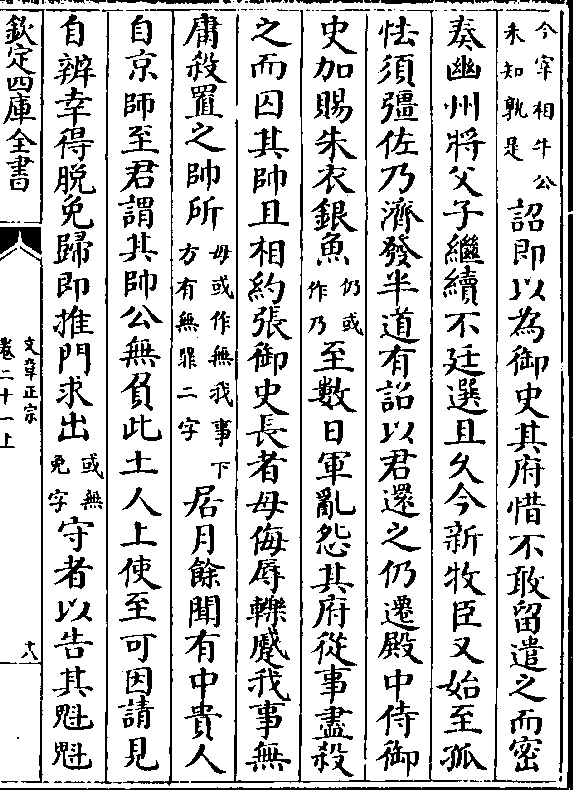 今宰相牛公
未知孰是
詔即以為御史其府惜不敢留遣之而密
奏幽州將父子繼續不廷選且久今新牧臣又始至孤
怯須彊佐乃濟發半道有詔以君還之仍遷殿中侍御
史加賜朱衣銀魚
仍或
作乃
至數日軍亂怨其府從事盡殺
之而囚其帥且相約張御史長者毋侮辱轢蹙我事無
庸殺置之帥所
毋或作無我事下
方有無罪二字
居月餘聞有中貴人
自京師至君謂其帥公無負此土人上使至可因請見
自辨幸得脫免歸即推門求出
或無
免字
守者以告其魁魁
欽定四庫全書
文章正宗
卷二十一上
十八